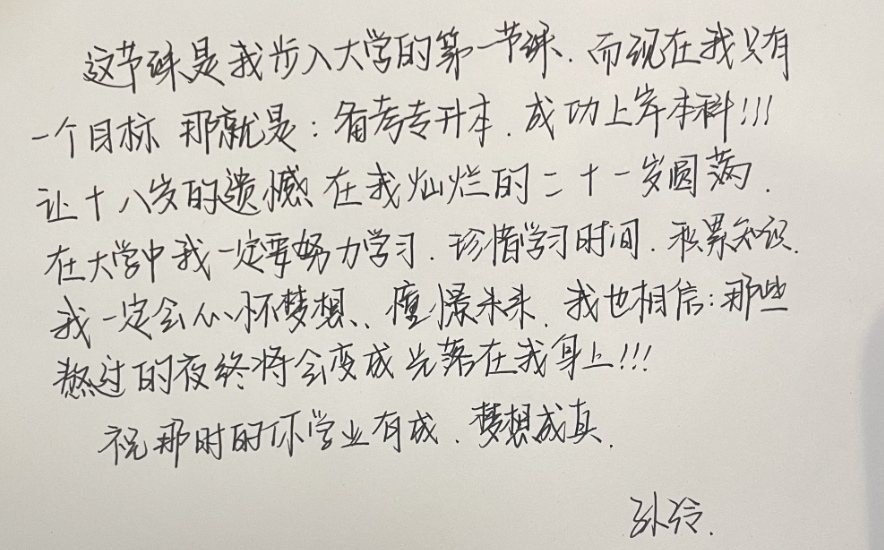 这节课是我步入大学的第一节课.而现在我只有
一个目标 那就是:备考专升本.成功上岸本科!!!
让十八岁的遗憾 在我灿烂的二十一岁圆满.
在大学中我一定要努力学习.珍惜学习时间.积累知识.
我一定会心怀梦想、憧憬未来.我也相信:那些
熬过的夜终将会变成光落在我身上!!!
祝那时的你学业有成.梦想成真.
孙玲.